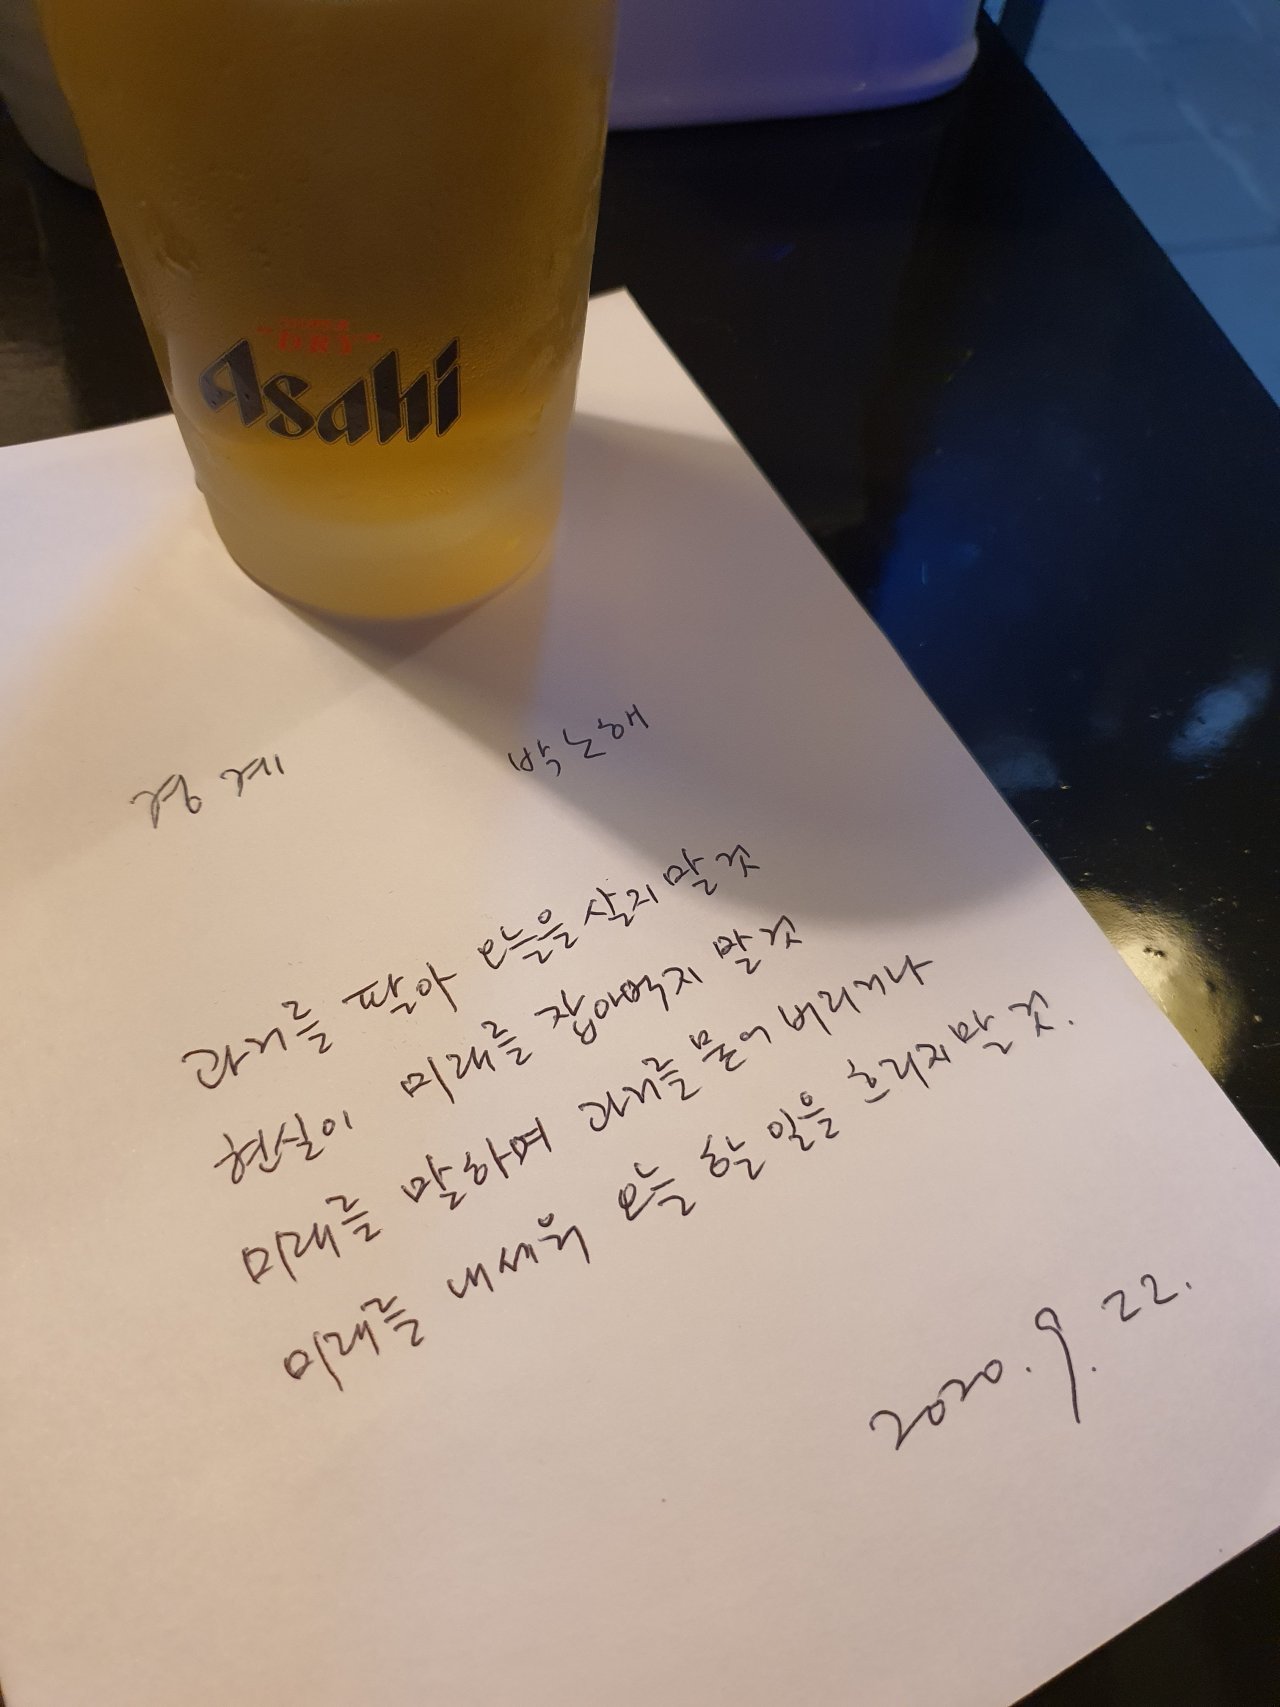 SUPER
"DRY"
Asahi
경계 박노해
과거를 팔아 오늘을 살지 말것
현실이 미래를 잡아먹지 말것
미래를 말하며 과거를 묻어 버리거나
미래를 내세워 오늘 할 일을 흐리지 말 것.
2020. 9. 22.